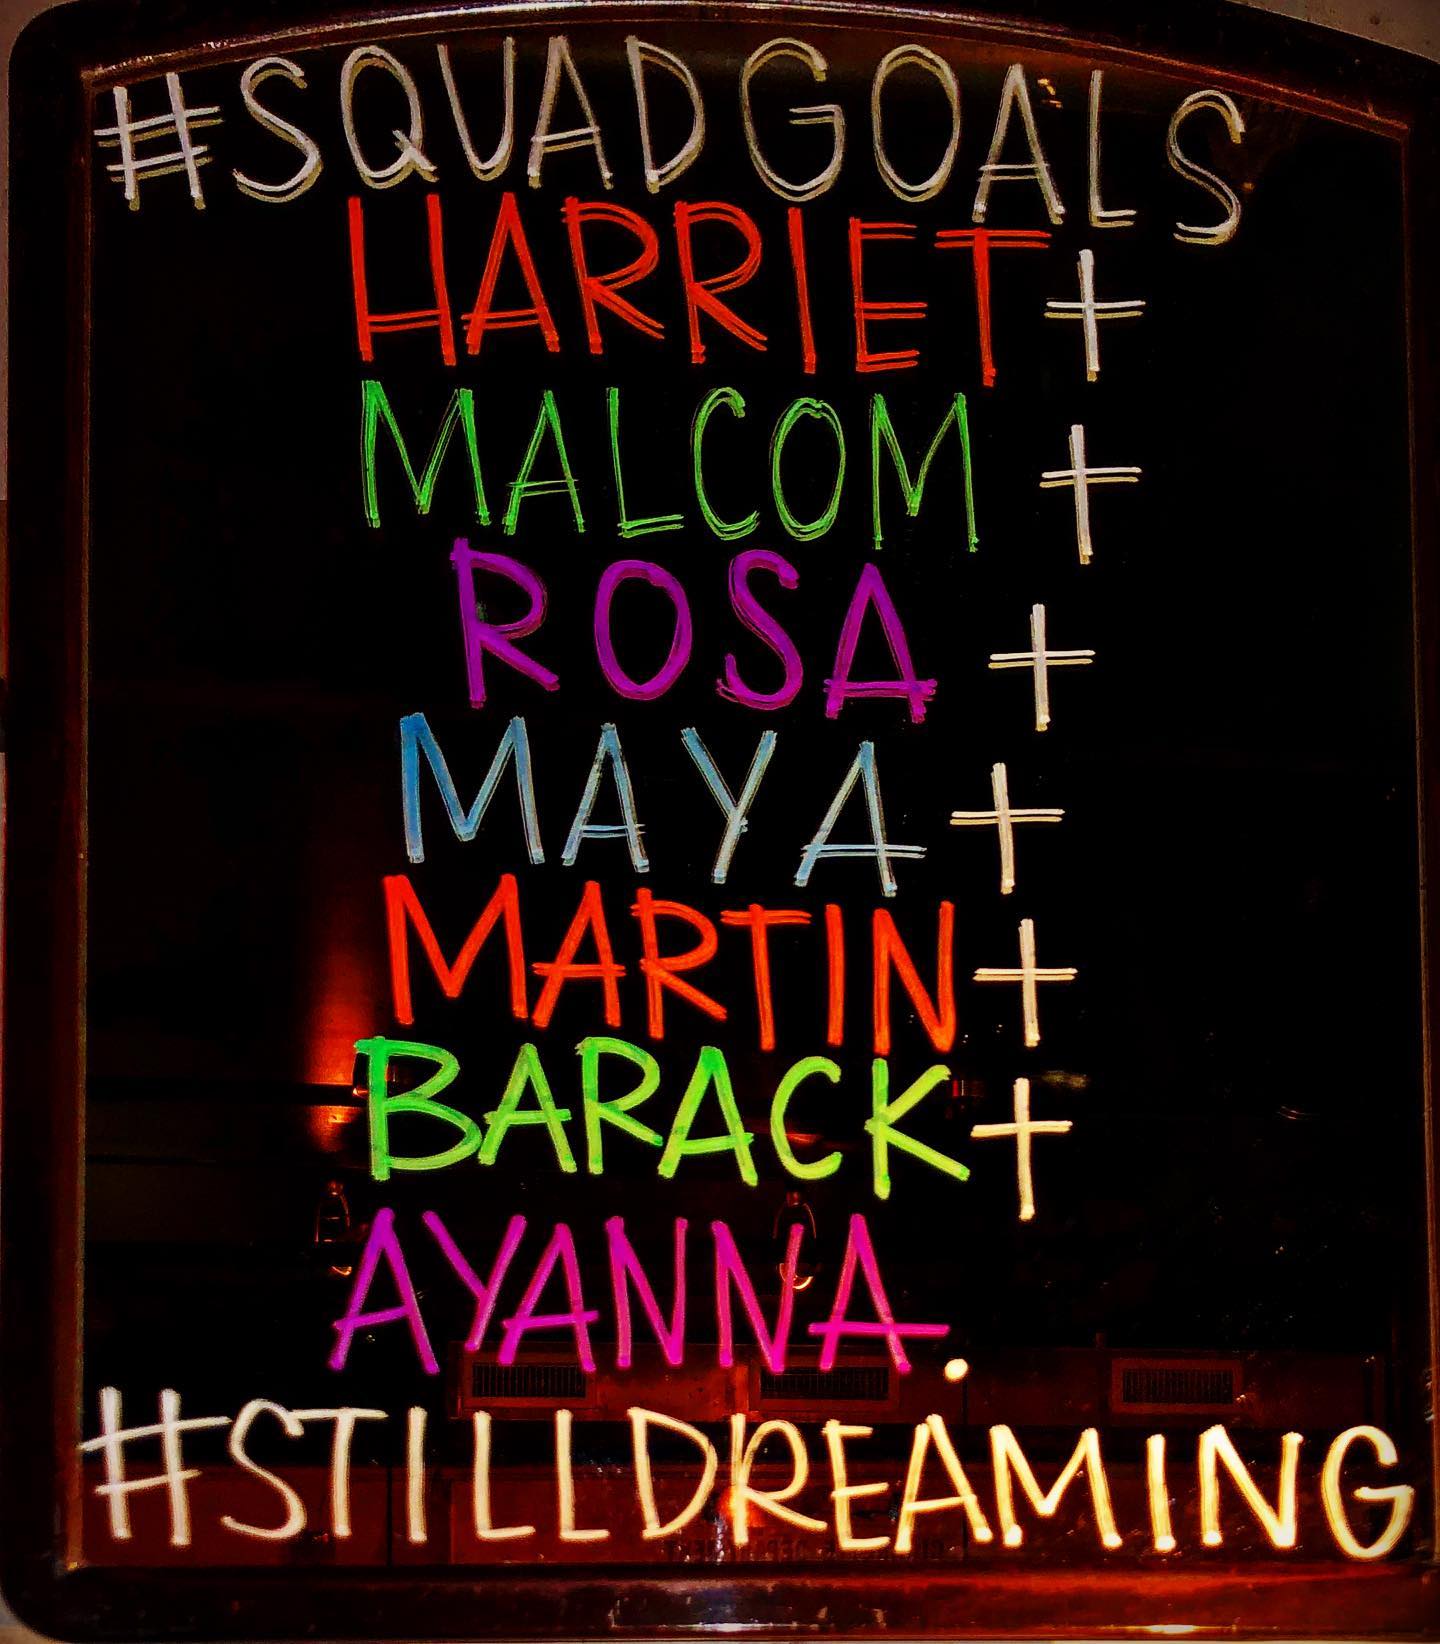 #SQUADGOALS
HARRIET +
MALCOM +
ROSA +
MAYA +
MARTIN +
BARACK +
AYANNA.
#STILLDREAMING